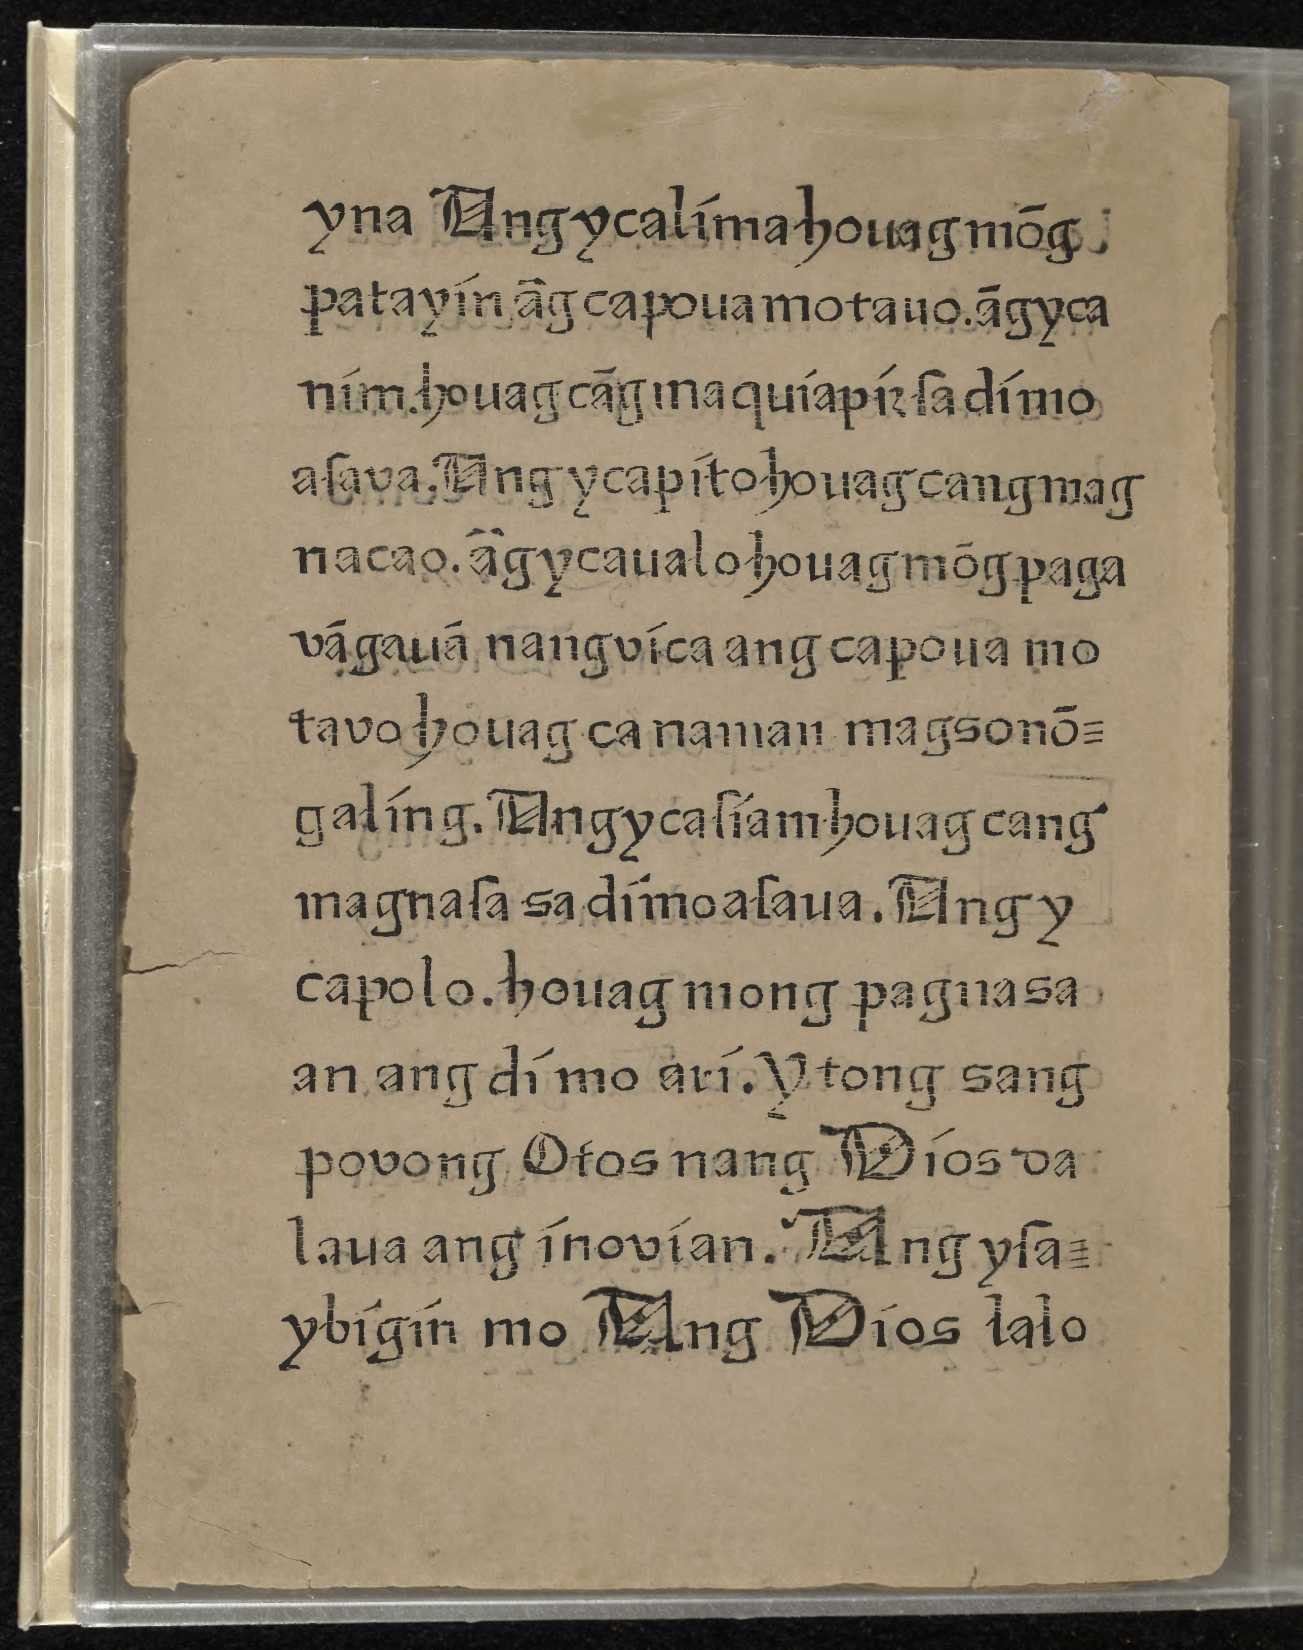 yna Ang ycalíma houag mōg
patayín āg capoua motauo. āgyca
ním. houag cāg maquíapíꝛ ſa dí mo
aſava. Ang ycapíto houag cang mag
nacao. āg ycaualo houag mōg paga
vāgauā nang víca ang capoua mo
tavo houag ca naman magsonō=
galíng. Ang ycaſíam houag cang
magnaſa sa dí mo aſaua. Ang y
capolo. houag mong pagnasa
an ang dí mo arí. Ytong sang
povong Otos nang Díos da
laua ang ínovían. Ang yſa=
ybígín mo Ang Díos lalo